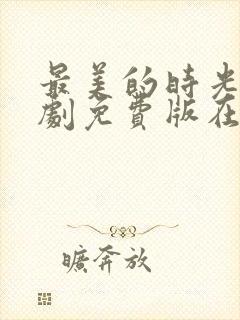 最美的時光
劇免費版在
曠奔放